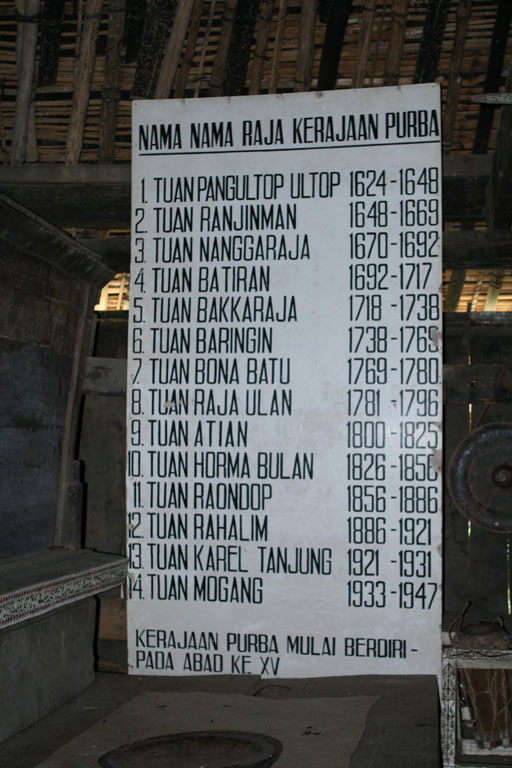 NAMA NAMA RAJA KERAJAAN PURBA
1. TUAN PANGULTOP ULTOP 1624-1648
2. TUAN RANJINMAN 1648-1669
3. TUAN NANGGARAJA 1670-1692
4. TUAN BATIRAN 1692-1717
5. TUAN BAKKARAJA 1718-1738
6. TUAN BARINGIN 1738-1769
7. TUAN BONA BATU 1769-1780
8. TUAN RAJA ULAN 1781-1796
9. TUAN ATIAN 1800-1825
10. TUAN HORMA BULAN 1826-1856
11. TUAN RAONDOP 1856-1886
12. TUAN RAHALIM 1886-1921
13. TUAN KAREL TANJUNG 1921-1931
14. TUAN MOGANG 1933-1947
KERAJAAN PURBA MULAI BERDIRI-
PADA ABAD KE XV